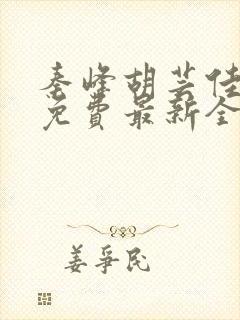 秦峰胡芸佳
免费最新全
姜爭民